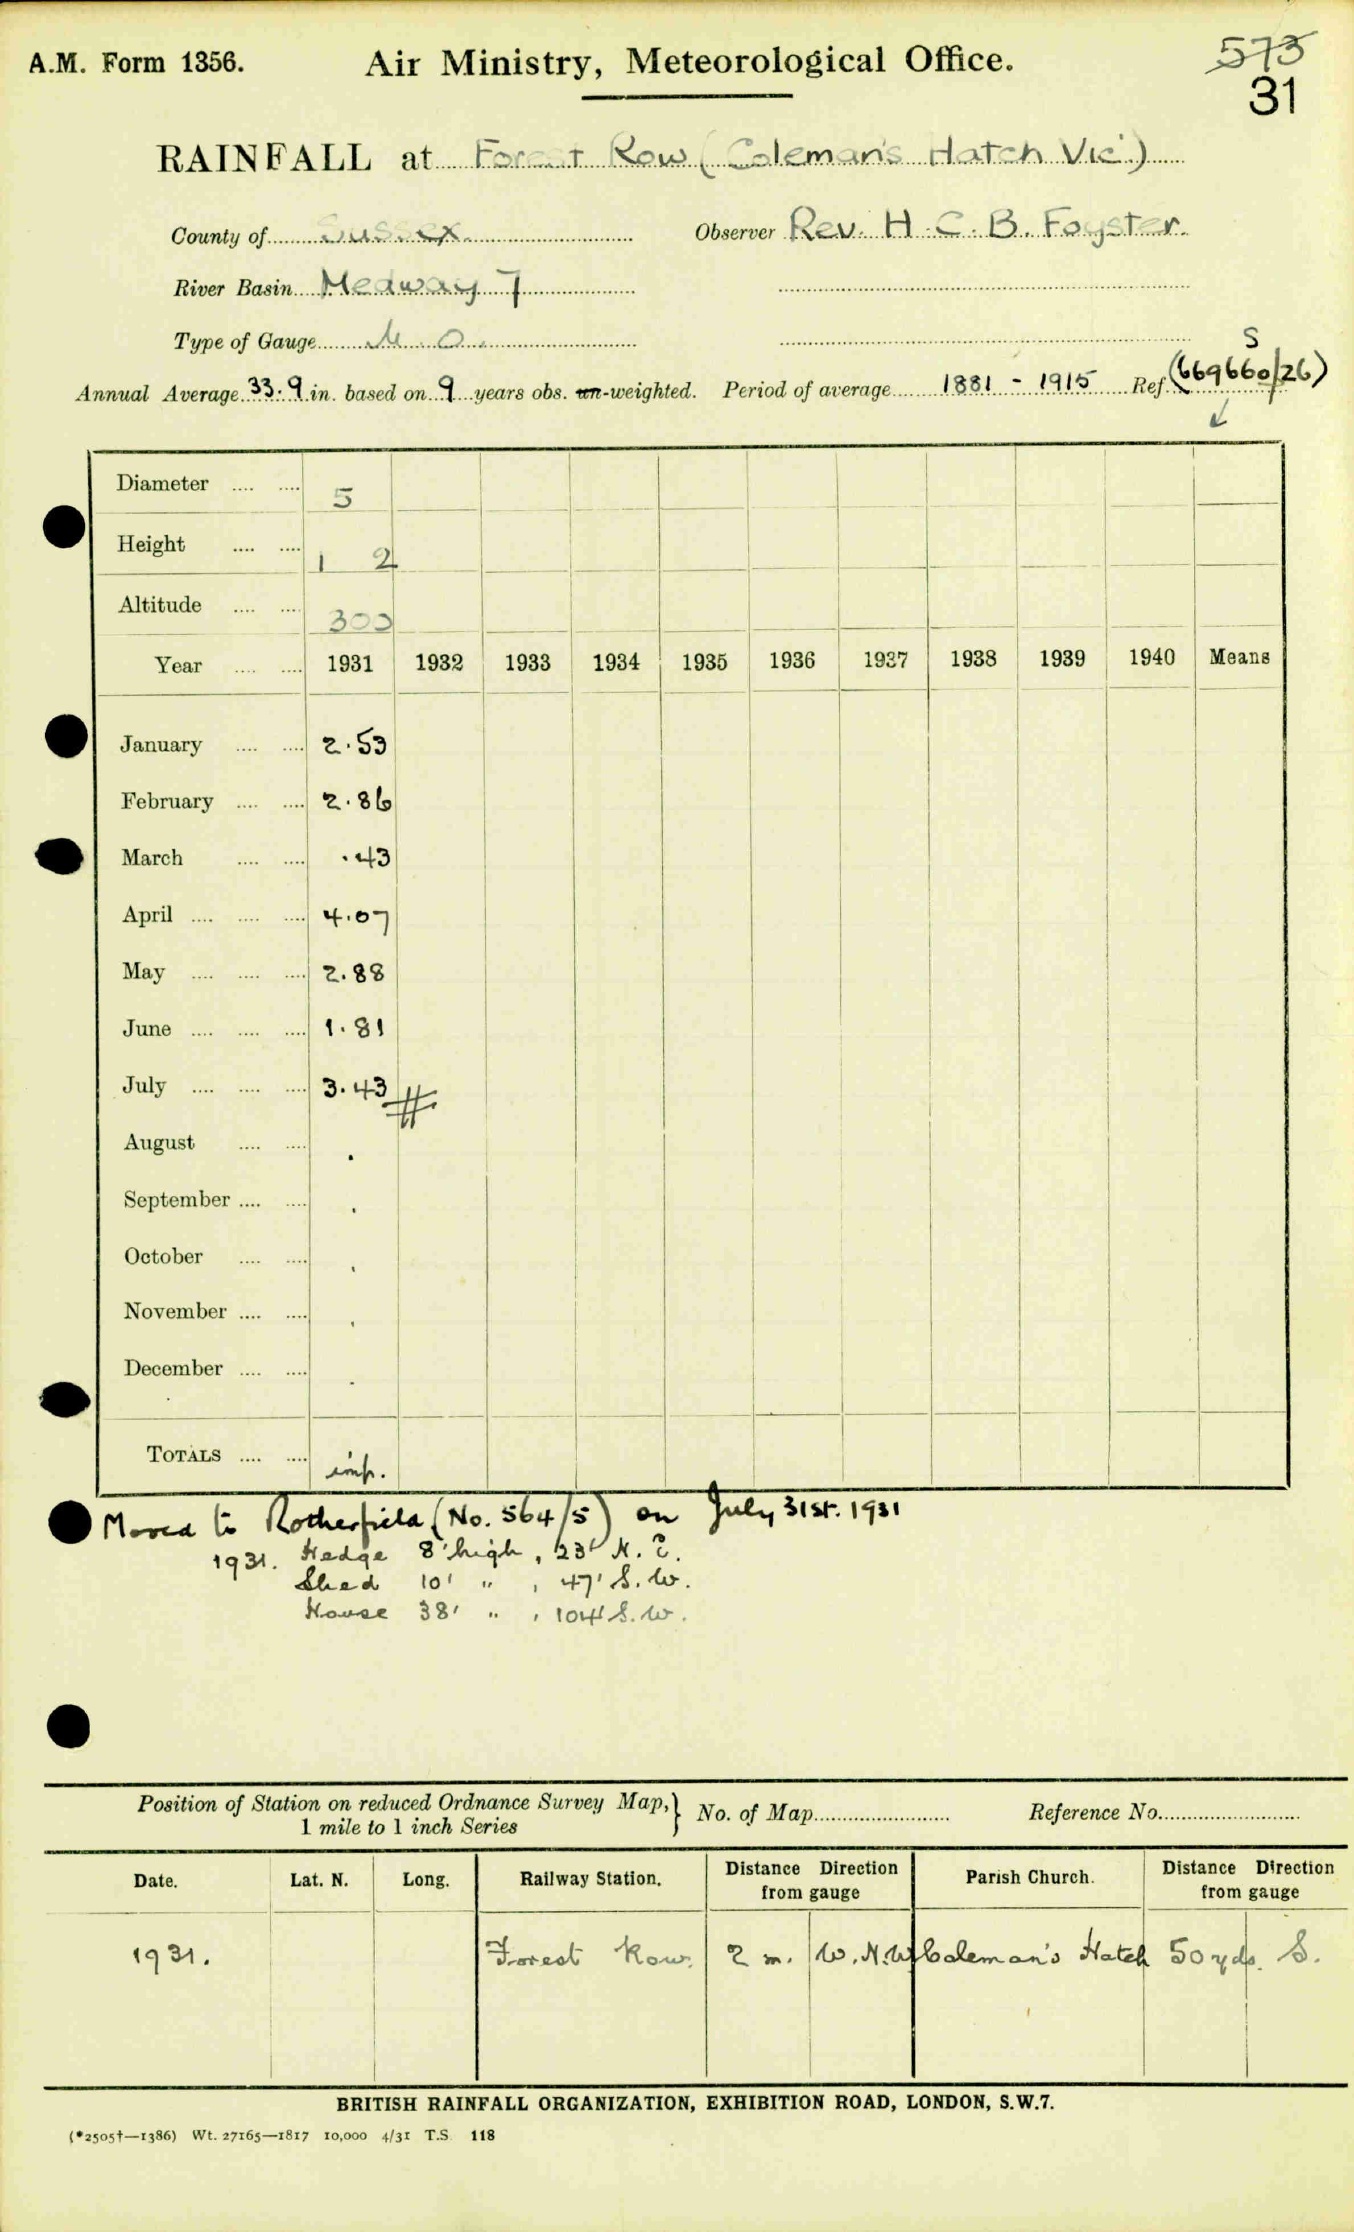 A.M. Form 1356. Air Ministry, Meteorological Office. 573
31
RAINFALL at Forest Row (Coleman's Hatch Vic.)
County of Sussex Observer Rev. H. C. B. Foyster.
River Basin Medway 7
Type of Gauge M.O.
S
Annual Average 33.9 in. based on 9 years obs. un-weighted. Period of average 1881 - 1915 Ref. (669660/26)
Diameter .... .... 5
Height .... .... 1 2
Altitude .... .... 300
Year .... .... 1931 1932 1933 1934 1935 1936 1937 1938 1939 1940 Means
January .... .... 2.53
February .... .... 2.86
March .... .... .43
April .... .... .... 4.07
May .... .... .... 2.88
June .... .... .... 1.81
July .... .... .... 3.43 #
August .... .... .
September .... .... .
October .... .... .
November .... .... .
December .... .... .
TOTALS .... .... imp.
Moved to Rotherfield (No. 564/5) on July 31st. 1931
1931. Hedge 8' high, 23' N.E.
Shed 10' " , 47' S.W.
House 38' " , 104' S.W.
Position of Station on reduced Ordnance Survey Map,} No. of Map Reference No.
1 mile to 1 inch Series
Date. Lat. N. Long. Railway Station. Distance Direction from gauge Parish Church. Distance Direction from gauge
1931. Forest Row. 2 m. W.N.W Coleman's Hatch 50 yds. S.
BRITISH RAINFALL ORGANIZATION, EXHIBITION ROAD, LONDON, S.W.7.
(*2505†—1386) Wt. 27165—1817 10,000 4/31 T.S. 118